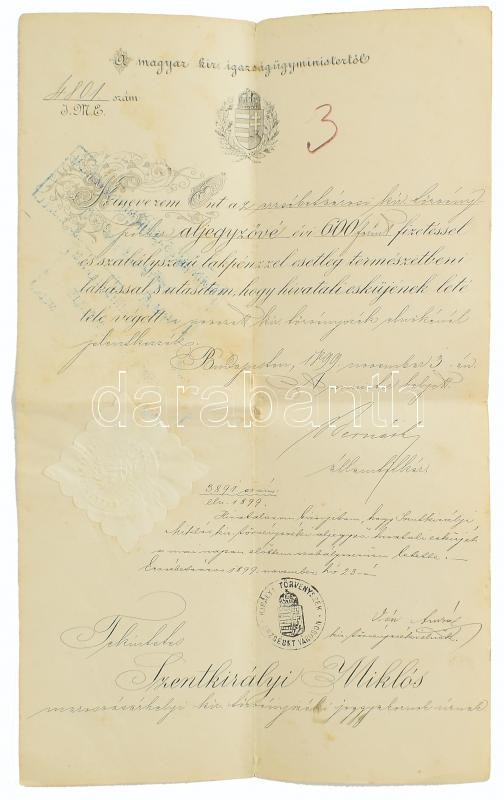 A magyar kir. igazságügyministertől
4801 szám
I.M.E.
3
Kinevezem Önt az erzsébetvárosi kir. törvény-
székhez aljegyzővé évi 600 frtnyi fizetéssel
és szabályszerű lakpénzzel esetleg természetbeni
lakással s utasítom, hogy hivatali esküjének leté-
tele végett a nevezett kir. törvényszék elnökénél
jelentkezzék.
Budapesten, 1899 november 3.-án
A minister helyett
államtitkár
darabanth
3891 szám
eln. 1899.
Hivatalosan bizonyítom, hogy Szentkirályi
Miklós kir. törvényszéki aljegyző hivatali esküjét
a mai napon előttem szabályszerűen letette.
Erzsébetváros 1899. november hó 23-án
KIRÁLYI TÖRVÉNYSZÉK
ERZSÉBETVÁROSON
kir. törvényszéki elnök
Tekintetes
Szentkirályi Miklós
marosvásárhelyi kir. törvényszéki joggyakornok úrnak